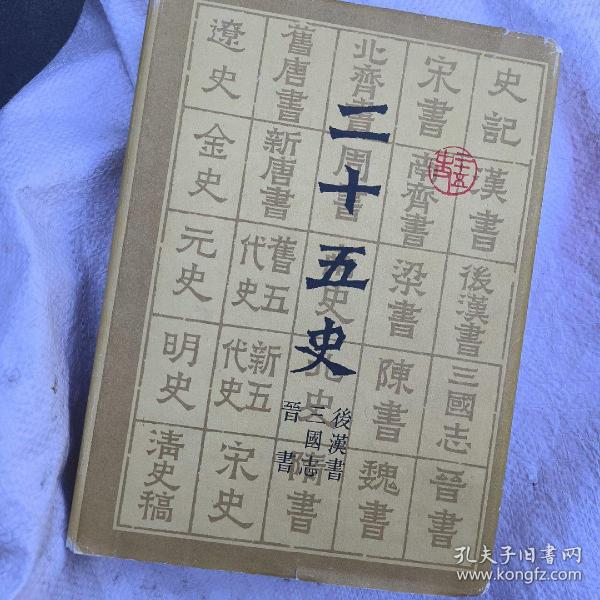 二十五史
後漢書
三國志
晉書
史記
漢書
後漢書
三國志
晉書
宋書
南齊書
梁書
陳書
魏書
北齊書
周書
南史
北史
隋書
舊唐書
新唐書
舊五代史
新五代史
宋史
遼史
金史
元史
明史
清史稿
孔夫子旧书网
www.kongfz.com